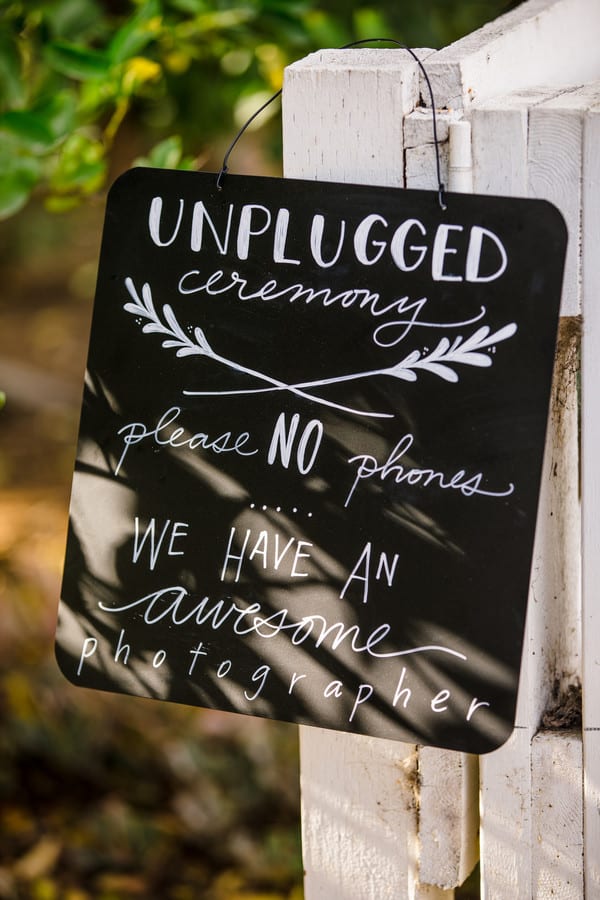 UNPLUGGED
ceremony
please NO phones
.....
WE HAVE AN
awesome
photographer